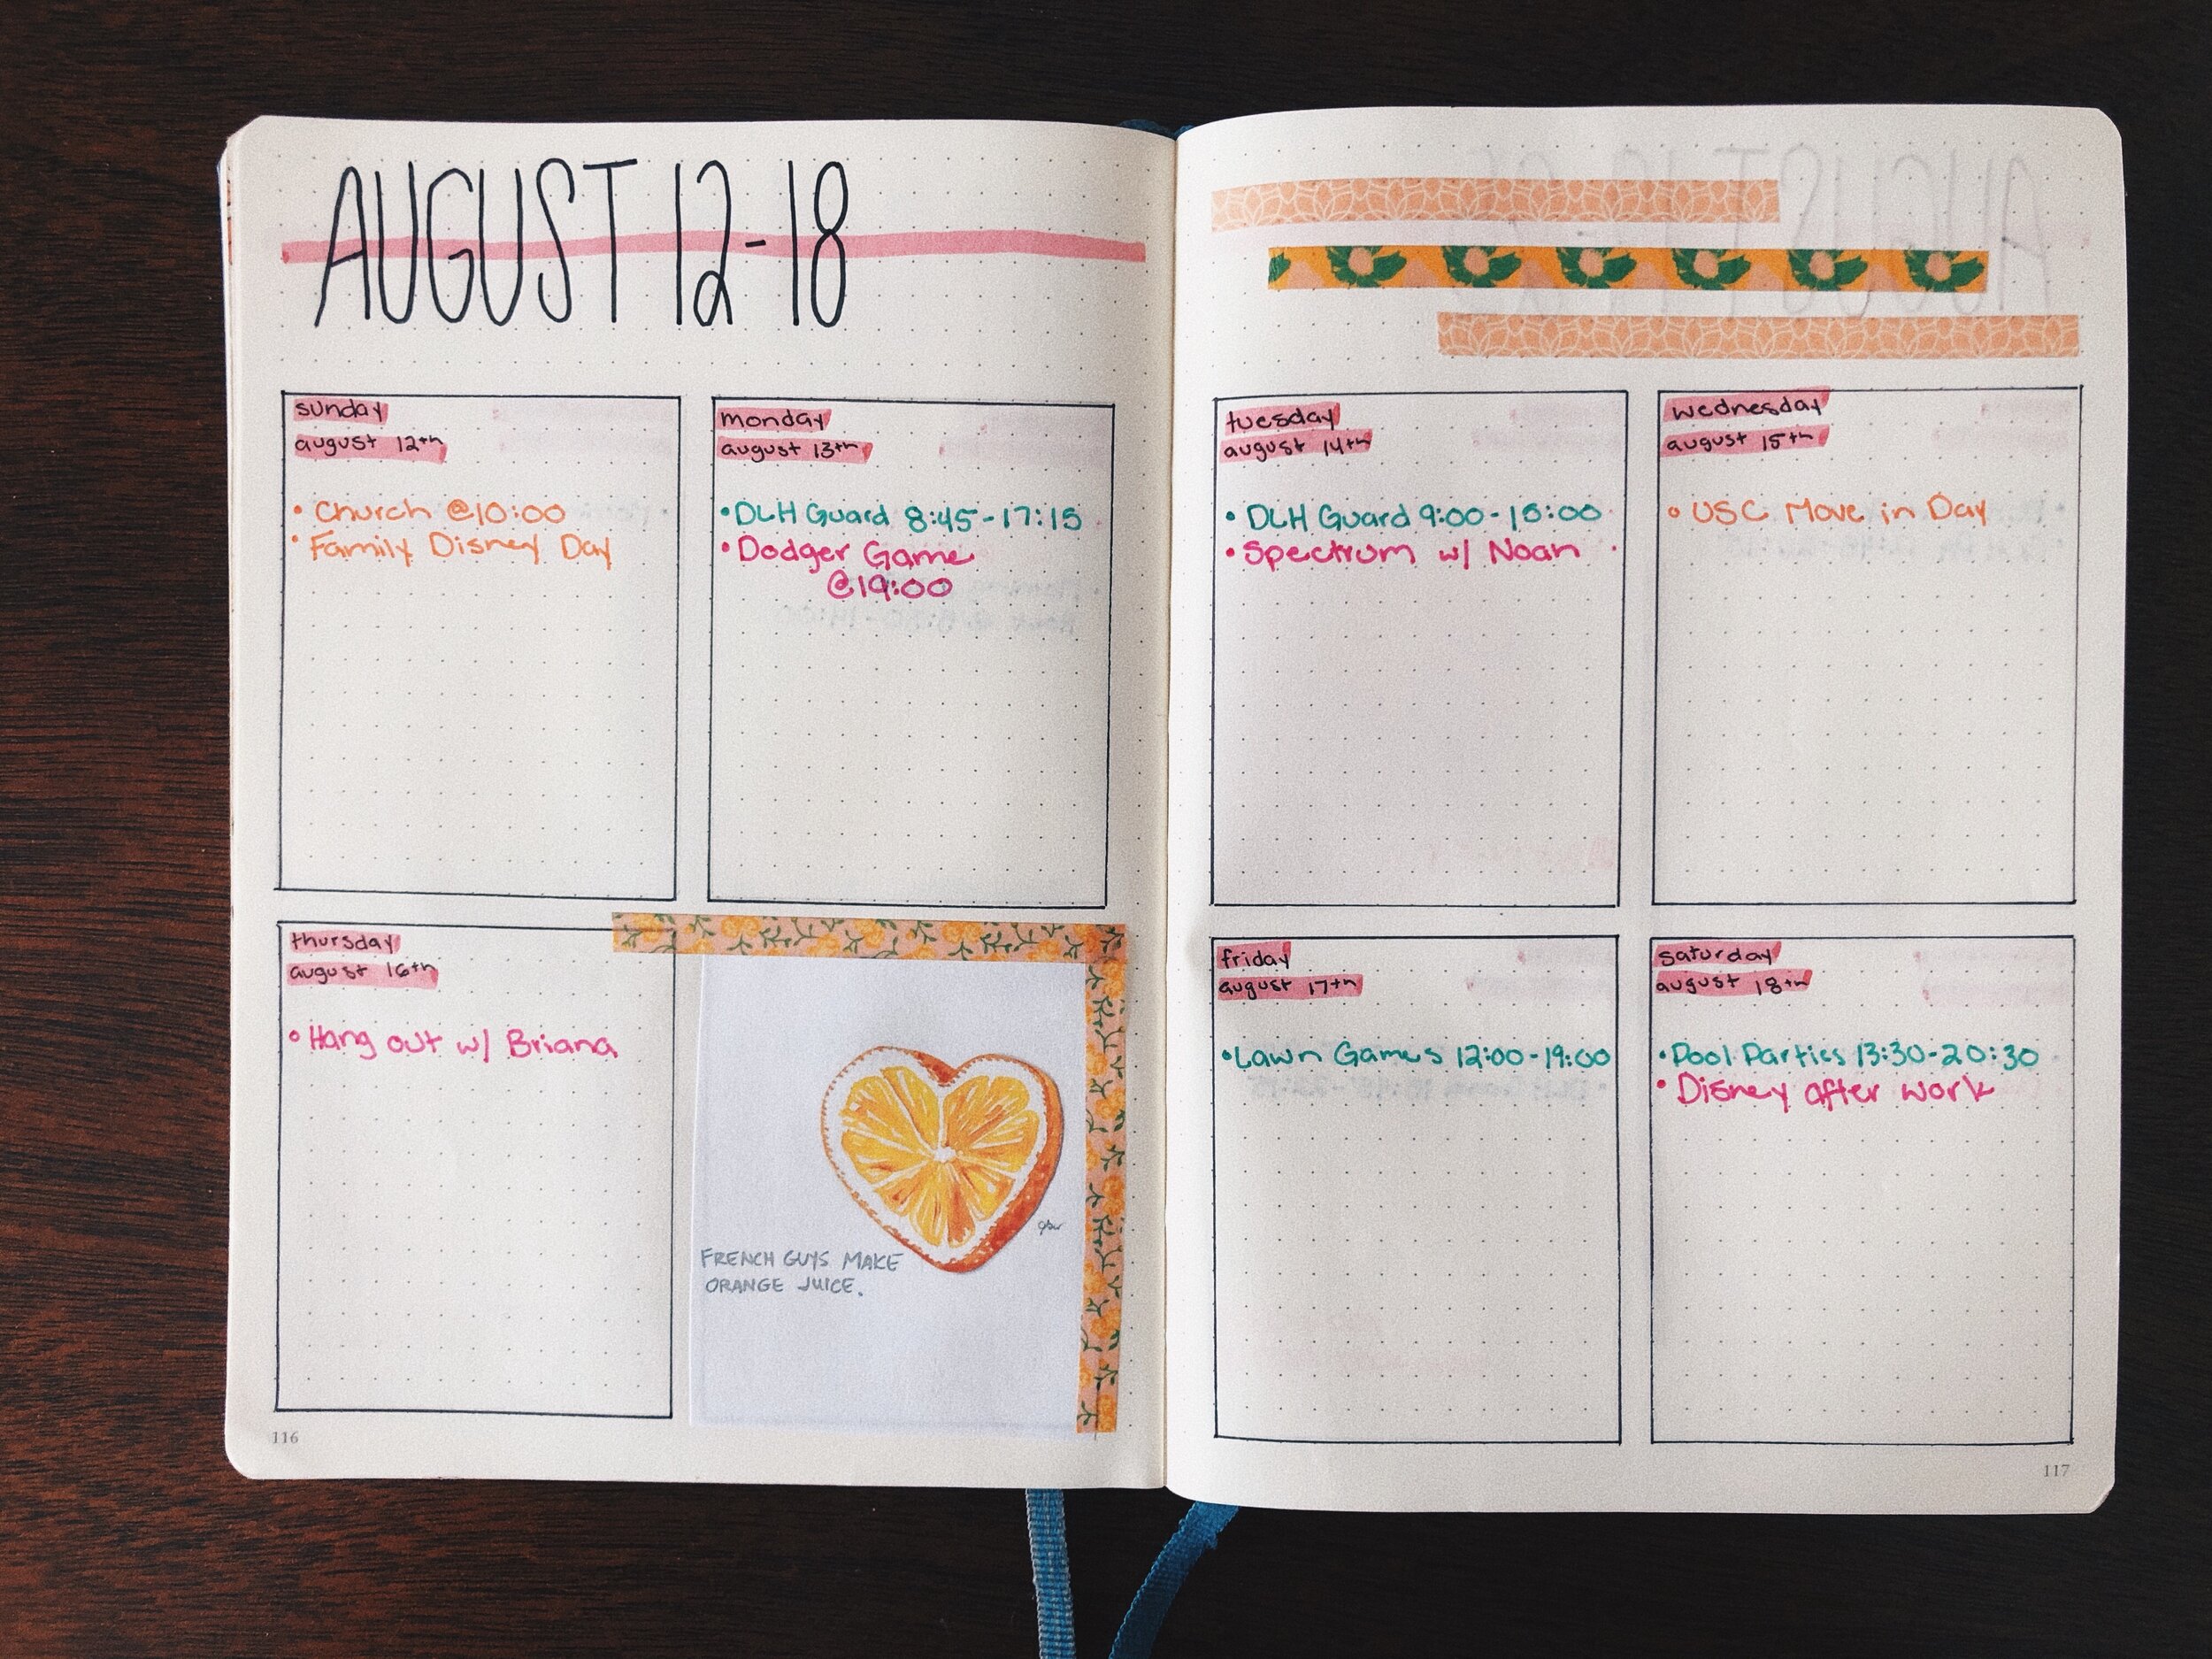 AUGUST 12-18
sunday
august 12th
• Church @10:00
• Family Disney Day
monday
august 13th
• DLH Guard 8:45-17:15
• Dodger Game
@19:00
thursday
august 16th
• Hang out w/ Briana
FRENCH GUYS MAKE
ORANGE JUICE.
116
tuesday
august 14th
• DLH Guard 9:00-15:00
• Spectrum w/ Noah
wednesday
august 15th
• USC Move in Day
friday
august 17th
• Lawn Games 12:00-19:00
saturday
august 18th
• Pool Parties 13:30-20:30
• Disney after work
117